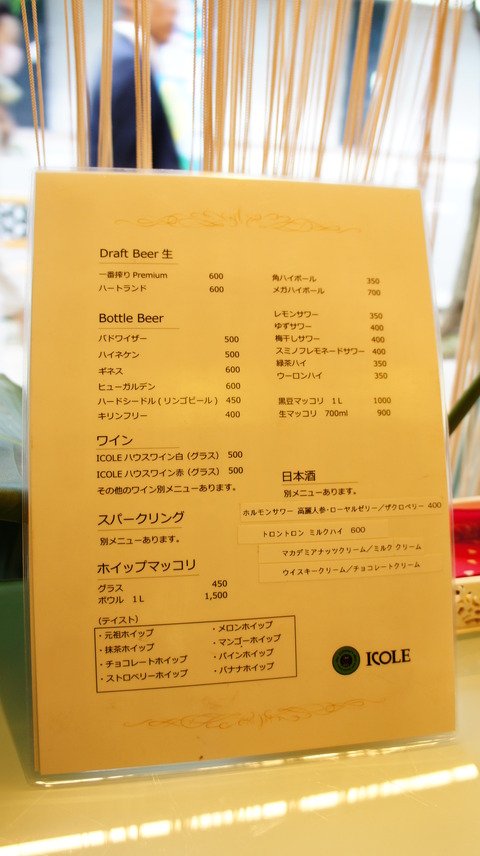 Draft Beer 生
一番搾り Premium 600
ハートランド 600
Bottle Beer
バドワイザー 500
ハイネケン 500
ギネス 600
ヒューガルデン 600
ハードシードル ( リンゴビール ) 450
キリンフリー 400
ワイン
ICOLE ハウスワイン白 (グラス) 500
ICOLE ハウスワイン赤 (グラス) 500
その他のワイン別メニューあります。
スパークリング
別メニューあります。
ホイップマッコリ
グラス 450
ボウル 1L 1,500
(テイスト)
・元祖ホイップ
・抹茶ホイップ
・チョコレートホイップ
・ストロベリーホイップ
・メロンホイップ
・マンゴーホイップ
・パインホイップ
・バナナホイップ
角ハイボール 350
メガハイボール 700
レモンサワー 350
ゆずサワー 400
梅干しサワー 400
スミノフレモネードサワー 400
緑茶ハイ 350
ウーロンハイ 350
黒豆マッコリ 1L 1000
生マッコリ 700ml 900
日本酒
別メニューあります。
ホルモンサワー 高麗人参・ローヤルゼリー／ザクロベリー 400
トロントロン ミルクハイ 600
マカデミアナッツクリーム／ミルク クリーム
ウイスキークリーム／チョコレートクリーム
ICOLE